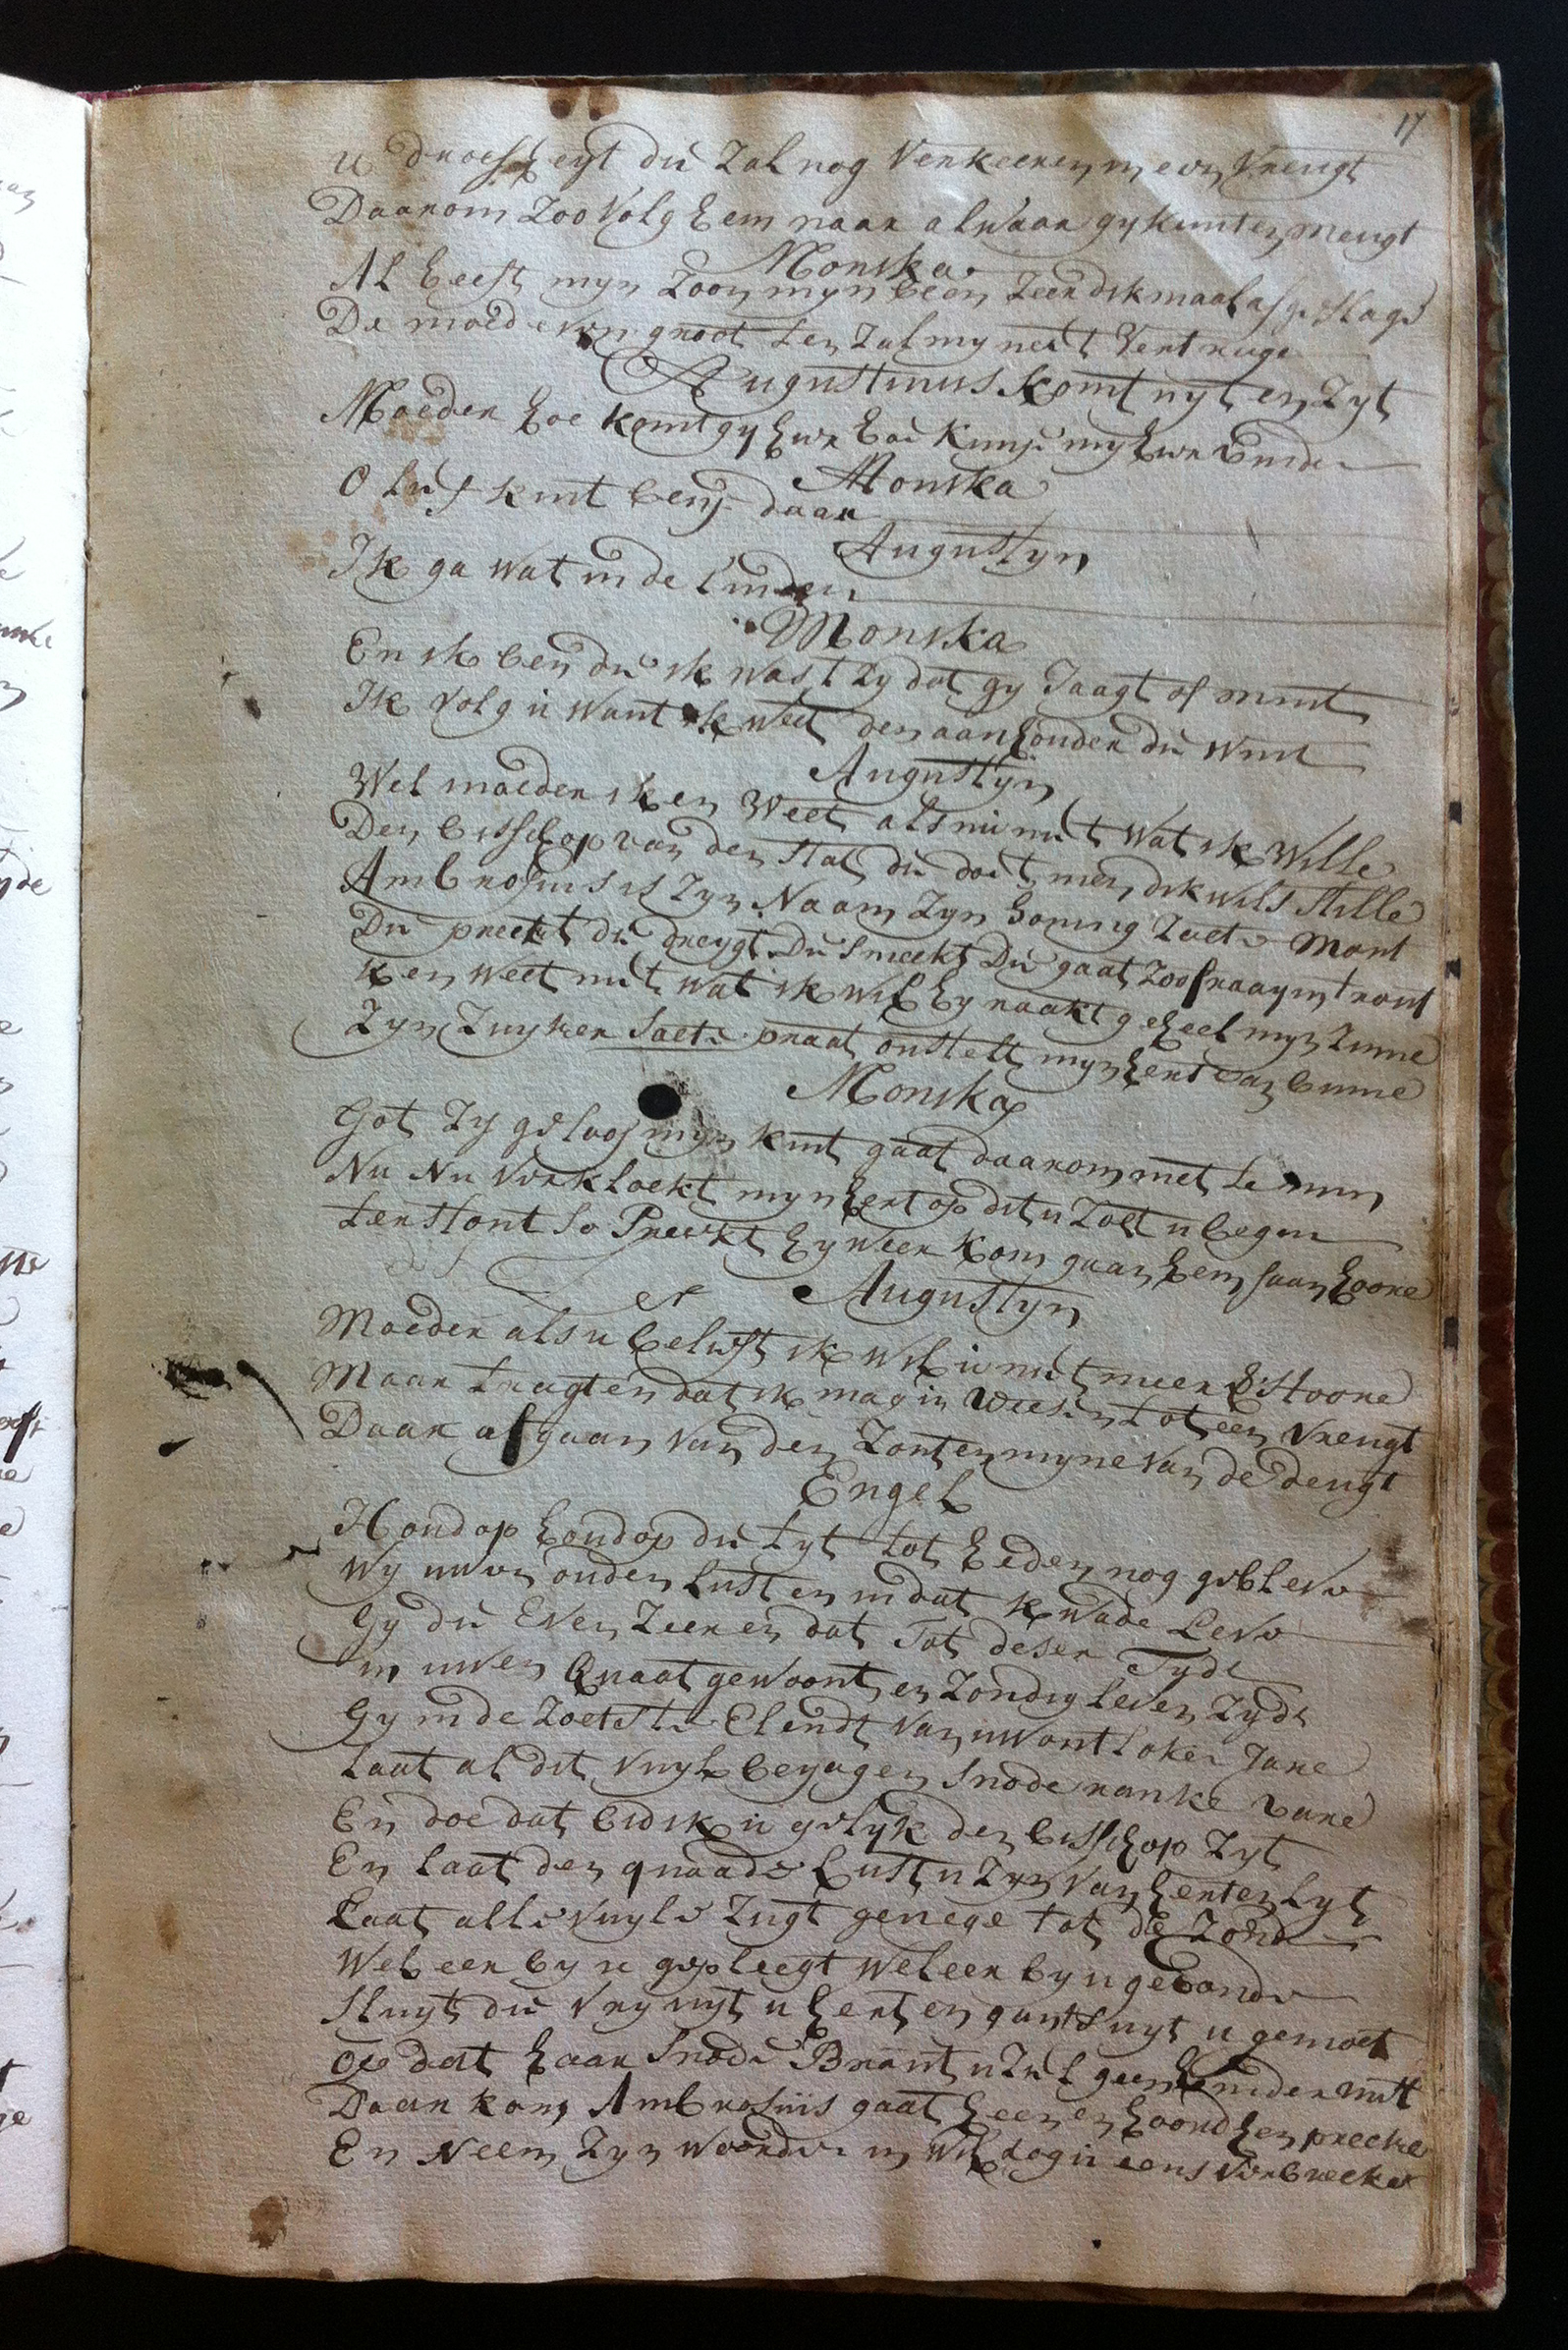 17
u droefheyt die Zal nog Verkeeren in een Vreugt
Daarom Zoo Volg hem naar alwaar gy kunt en meugt
Monika
Al heeft myn Zoon myn been Zeer dikmaal afgeslage
De moed even groot ten Zal my niet Vertrage
Augustinus komt uyt en Zyt
Moeder hoe komt gy hier hoe kunje my hier vinde
Monika
O lief kint ben j daar
Augustyn
Ik ga wat in de linden
Monika
En ik ben die ik was t Zy dat gy Jaagt of mint
Ik Volg u Want ik weet den aanhouder die wint
Augustyn
Wel moeder ik en Weet als nu niet Wat ik Wille
Den bisschop van den Stat die doet men dikwils Stille
Ambrosius is Zyn Naam Zyn honing Zoete Mont
Die preekt die dreygt Die Smeekt Die gaat Zoo fraay in t ront
k en weet niet wat ik wil hy raakt geheel myn Zinne
Zyn Zuyker Soete praat onstelt myn hert van binne
Monika
Got Zy gelooft myn kint gaat daarom met te min
Nu Nu Verkloekt myn hert op dit u Zoet u begin
terstont So Preekt hy weer kom gaan hem saan hoore
Augustyn
Moeder als u belieft ik wil u niet meer Stoore
Maar tragten dat ik mag in Weesen tot een Vreugt
Daar af gaan Van den Zont en myne Van de deugt
Engel
Houd op houd op die tyt tot heden nog gebleve
Wy uwen ouden lust en in dat kwade Leve
Gy die Even Zeer en dat Tot deser Tydt
in uwen quaat gewoont en Zondig leven Zydt
Gy in de Zoetste Elendt Van uw ontloken Jare
Laat al dit Vuyl bejagen Snode ranke vare
En doe dat bid ik u gelyk den bisschop Zyt
En laat den quade lust u Zyn Van herten lyt
Laat alle Vuyle Zugt genege tot de Zonde
Wel eer by u gepleegt wel eer by u gebonde
Sluyt die Vry uyt u hert en gants uyt u gemoet
op dat haar Snode Brant u Zul geen hinder
Daar kom Ambrosius gaat heen en hoord hem preeke
En Neem Zyn woorden in Wil dog u eens Verbreeke